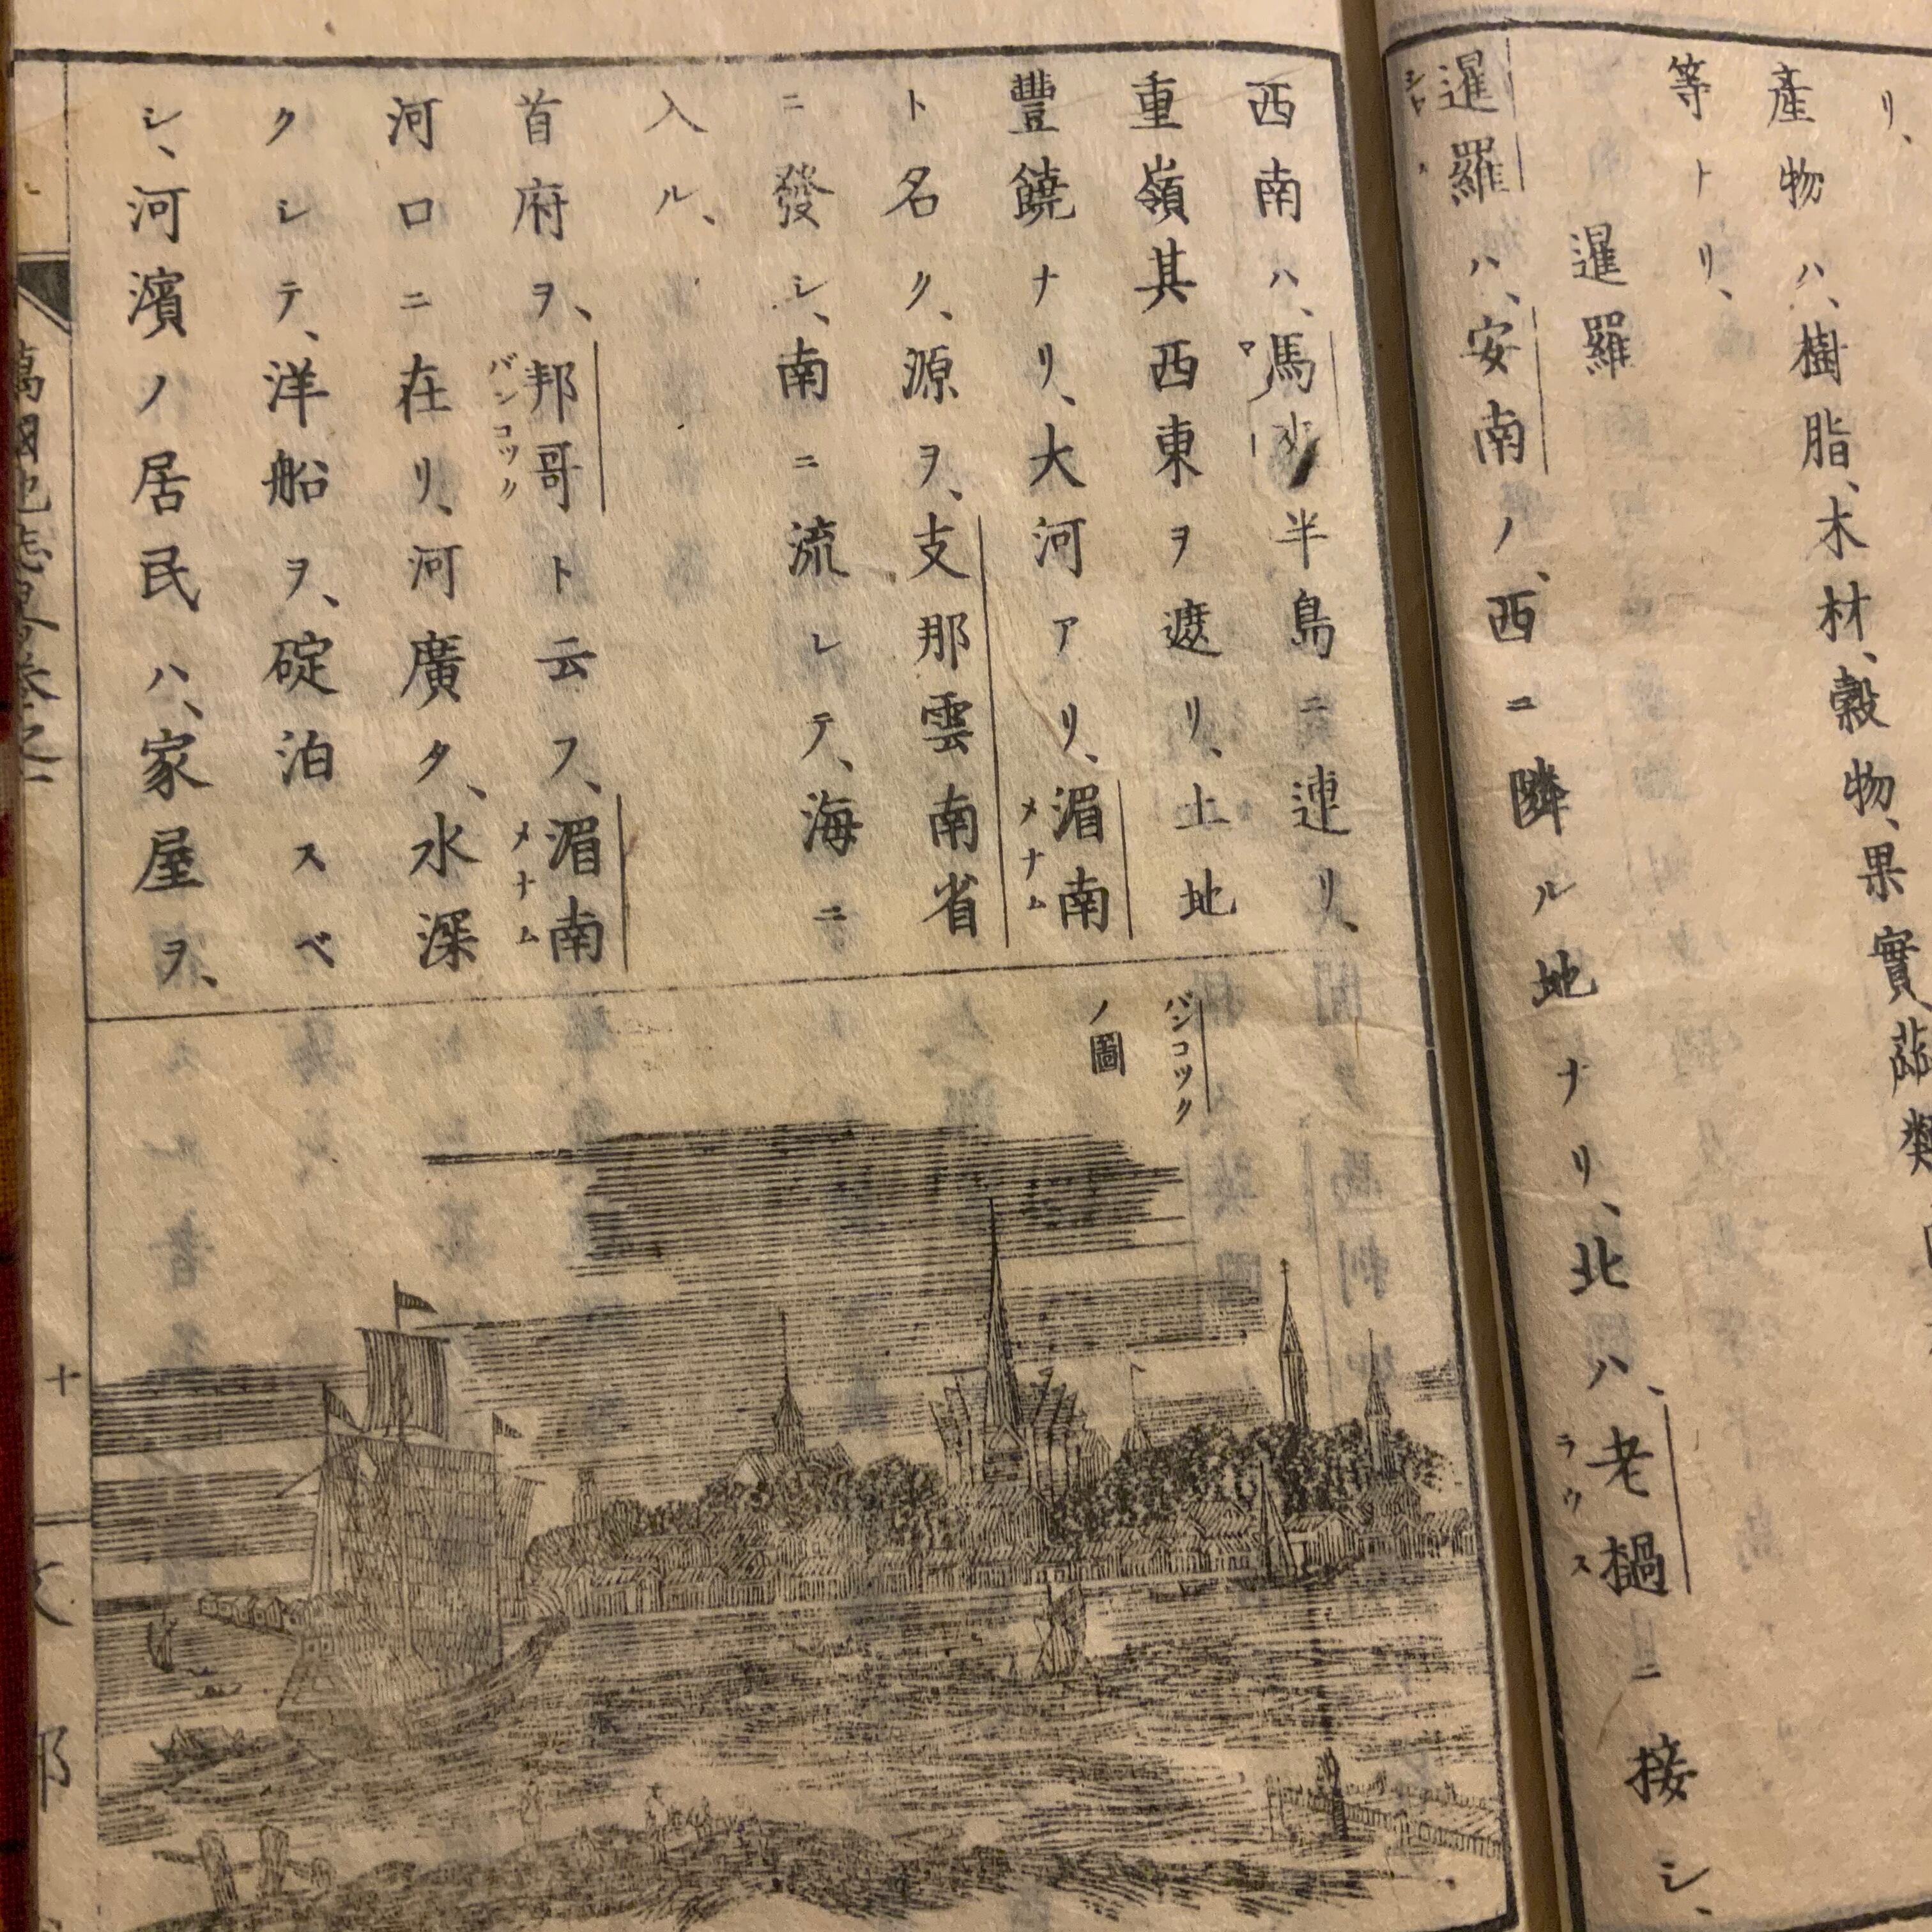 リ、
産物ハ、樹脂、木材、穀物、果實、蔬類
等トリ、
暹羅
暹羅ハ、安南ノ、西ニ隣ル地ナリ、北ハ、老檛ラウスニ接シ、
西南ハ、馬半島ニ連リ、
重嶺其西東ヲ遮リ、土地
豐饒ナリ、大河アリ、湄南メナム
ト名ク、源ヲ、支那雲南省
ニ發シ、南ニ流レテ、海ニ
入ル、
首府ヲ、邦哥バンコックト云フ、湄南メナム
河口ニ在リ、河廣ク、水深
クシテ、洋船ヲ、碇泊スベ
シ、河濱ノ居民ハ、家屋ヲ、
バンコック
ノ圖
十